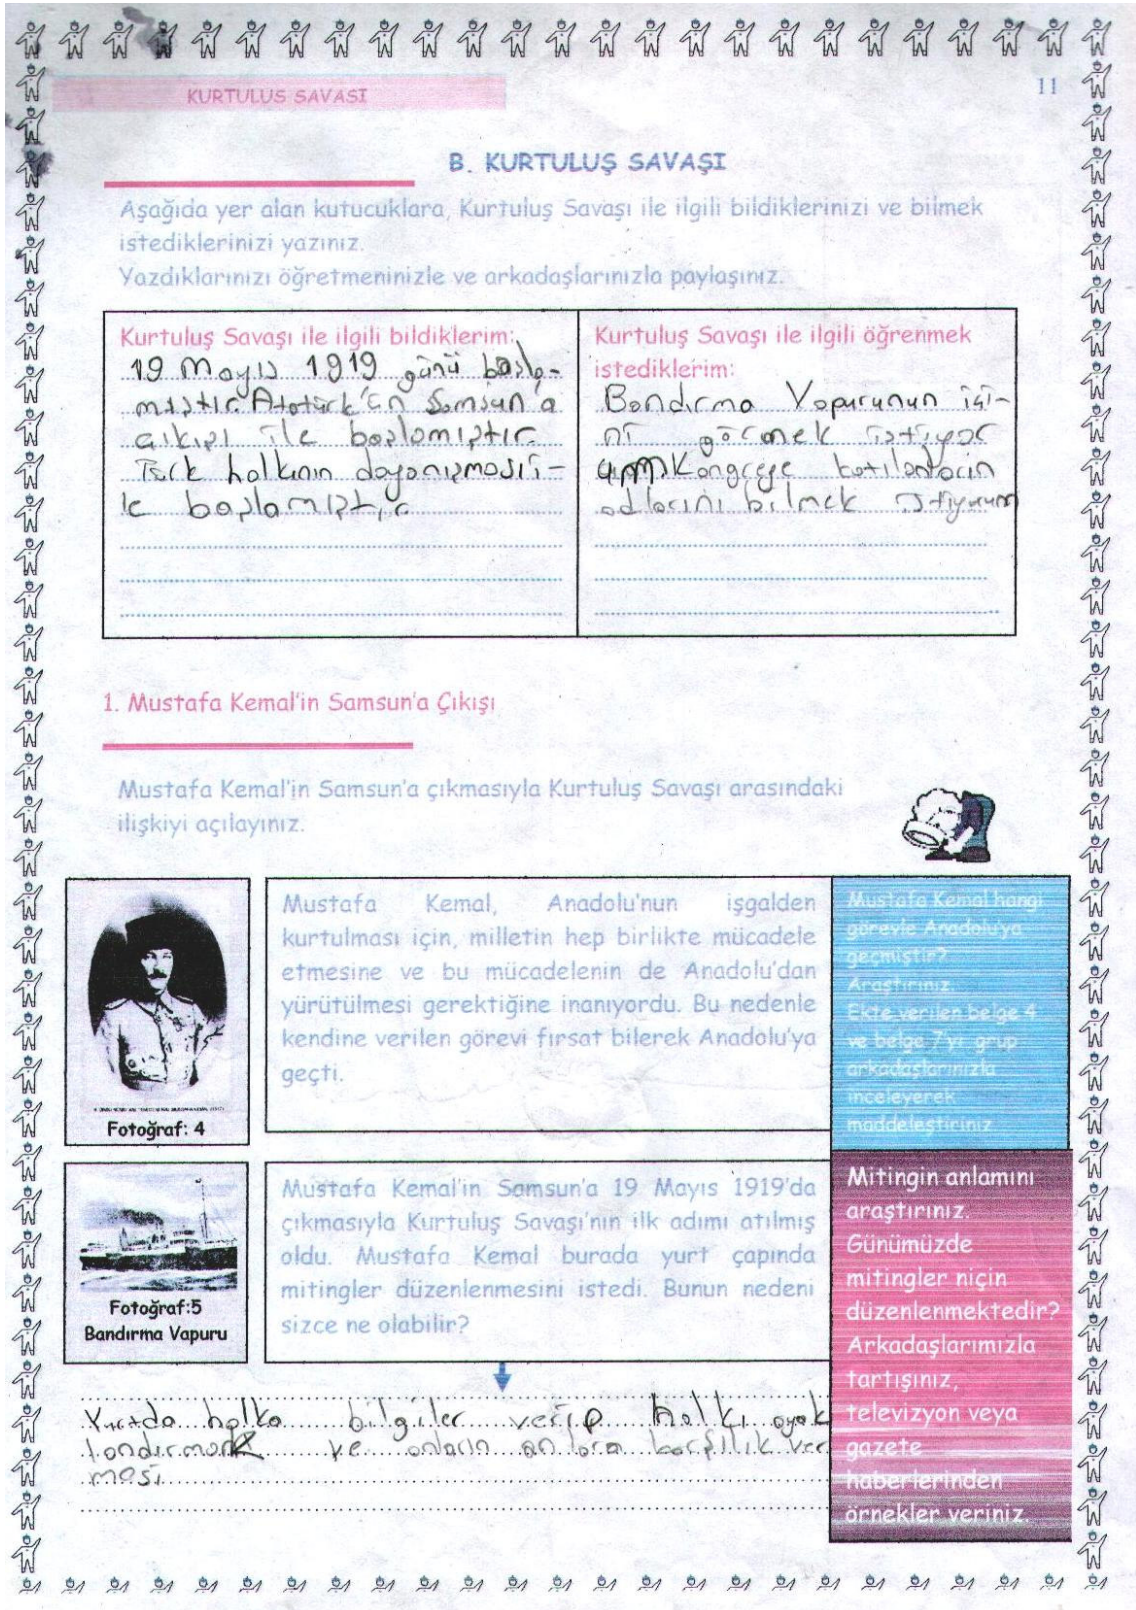 KURTULUS SAVASI
11
B. KURTULUŞ SAVAŞI
Aşağıda yer alan kutucuklara, Kurtuluş Savaşı ile ilgili bildiklerinizi ve bilmek
istediklerinizi yazınız.
Yazdıklarınızı öğretmeninizle ve arkadaşlarınızla paylaşınız.
Kurtuluş Savaşı ile ilgili bildiklerim:
19 Mayıs 1919 günü başla-
mıştır. Atatürk'ün Samsun'a
çıkışı ile başlamıştır.
Türk halkının dayanışması i-
le başlamıştır
Kurtuluş Savaşı ile ilgili öğrenmek
istediklerim:
Bandırma Vapurunun içi-
ni görmek istiyor
um Kongreye katılanların
adlarını bilmek istiyorum
1. Mustafa Kemal'in Samsun'a Çıkışı
Mustafa Kemal'in Samsun'a çıkmasıyla Kurtuluş Savaşı arasındaki
ilişkiyi açılayınız.
Fotoğraf: 4
Mustafa Kemal, Anadolu'nun işgalden
kurtulması için, milletin hep birlikte mücadele
etmesine ve bu mücadelenin de Anadolu'dan
yürütülmesi gerektiğine inanıyordu. Bu nedenle
kendine verilen görevi fırsat bilerek Anadolu'ya
geçti.
Mustafa Kemal hangi
görevle Anadolu'ya
geçmiştir?
Araştırınız.
Ekte verilen belge 4
ve belge 7'yi grup
arkadaşlarınızla
inceleyerek
maddeleştiriniz
Fotoğraf:5
Bandırma Vapuru
Mustafa Kemal'in Samsun'a 19 Mayıs 1919'da
çıkmasıyla Kurtuluş Savaşı'nın ilk adımı atılmış
oldu. Mustafa Kemal burada yurt çapında
mitingler düzenlenmesini istedi. Bunun nedeni
sizce ne olabilir?
Mitingin anlamını
araştırınız.
Günümüzde
mitingler niçin
düzenlenmektedir?
Arkadaşlarımızla
tartışınız,
televizyon veya
gazete
haberlerinden
örnekler veriniz.
Yurtda halka bilgiler verip halkı ayak
landırmak ve onların anlara karşılık ver
mesi